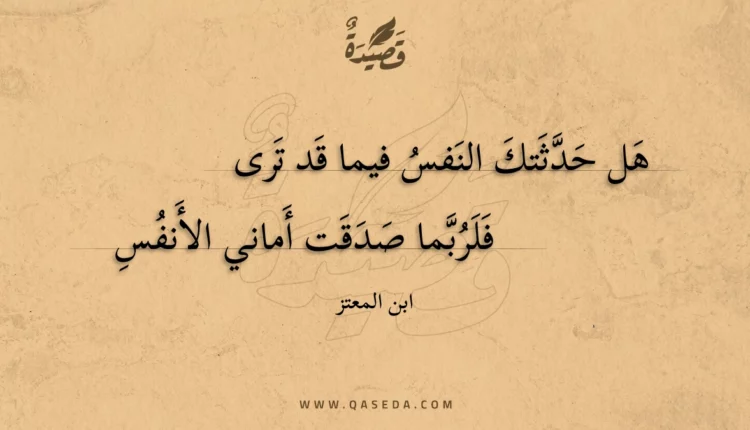 قَصِيدَةٌ
هَل حَدَّثَتكَ النَفسُ فيما قَد تَرى
فَلَرُبَّما صَدَقَت أَماني الأَنفُسِ
ابن المعتز
WWW.QASEDA.COM